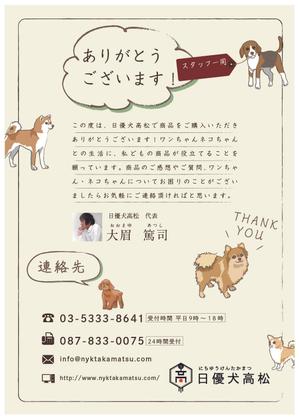 ありがとう
ございます！
スタッフ一同
この度は、日優犬高松で商品をご購入いただき
ありがとうございます！ワンちゃんネコちゃん
との生活に、私どもの商品が役立てることを
願っています。商品のご感想やご質問、ワンちゃ
ん・ネコちゃんについてお困りのことがござい
ましたらお気軽にご連絡頂ければと思います。
日優犬高松　代表
おおまゆ　あつし
大眉　篤司
THANK
YOU
連絡先
03-5333-8641 受付時間 平日9時〜18時
087-833-0075 24時間受付
info@nyktakamatsu.com
http://www.nyktakamatsu.com/
にちゆうけんたかまつ
日優犬高松